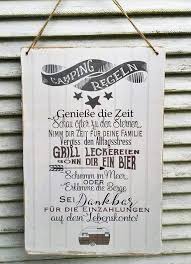 CAMPING REGELN
Genieße die Zeit
Schau öfter zu den Sternen
NIMM DIR ZEIT FÜR DEINE FAMILIE
Vergiss den Alltagsstress
GRILL LECKEREIEN
GÖNN DIR EIN BIER
Schwimm im Meer
ODER
Erklimme die Berge
SEI Dankbar
FÜR DIE EINZAHLUNGEN
auf dein Lebenskonto!